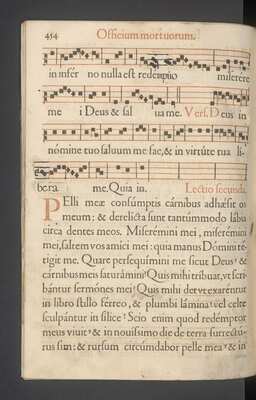 454 Officium mortuorum.
in infér no nulla est redemptio miserére
me i Deus & sal ua me. Vers. Deus in
nómine tuo saluum me fac, & in virtúte tua lí-
bera me. Quia in. Lectio secunda.
PElli meæ consúmptis cárnibus adhæsit os
meum: & derelícta sunt tantúmmodo lábia
circa dentes meos. Miserémini mei, miserémini
mei, saltem vos amíci mei: quia manus Dómini té-
tigit me. Quare persequímini me sicut Deus? &
cárnibus meis saturámini? Quis mihi tríbuat, vt scri-
bántur sermónes mei? Quis mihi det vt exaréntur
in libro stilo férreo, & plumbi lámina: vel celte
sculpántur in sílice? Scio enim quod redémptor
meus viuit: & in nouíssimo die de terra surrectú-
rus sim: & rursum circúmdabor pelle mea: & in